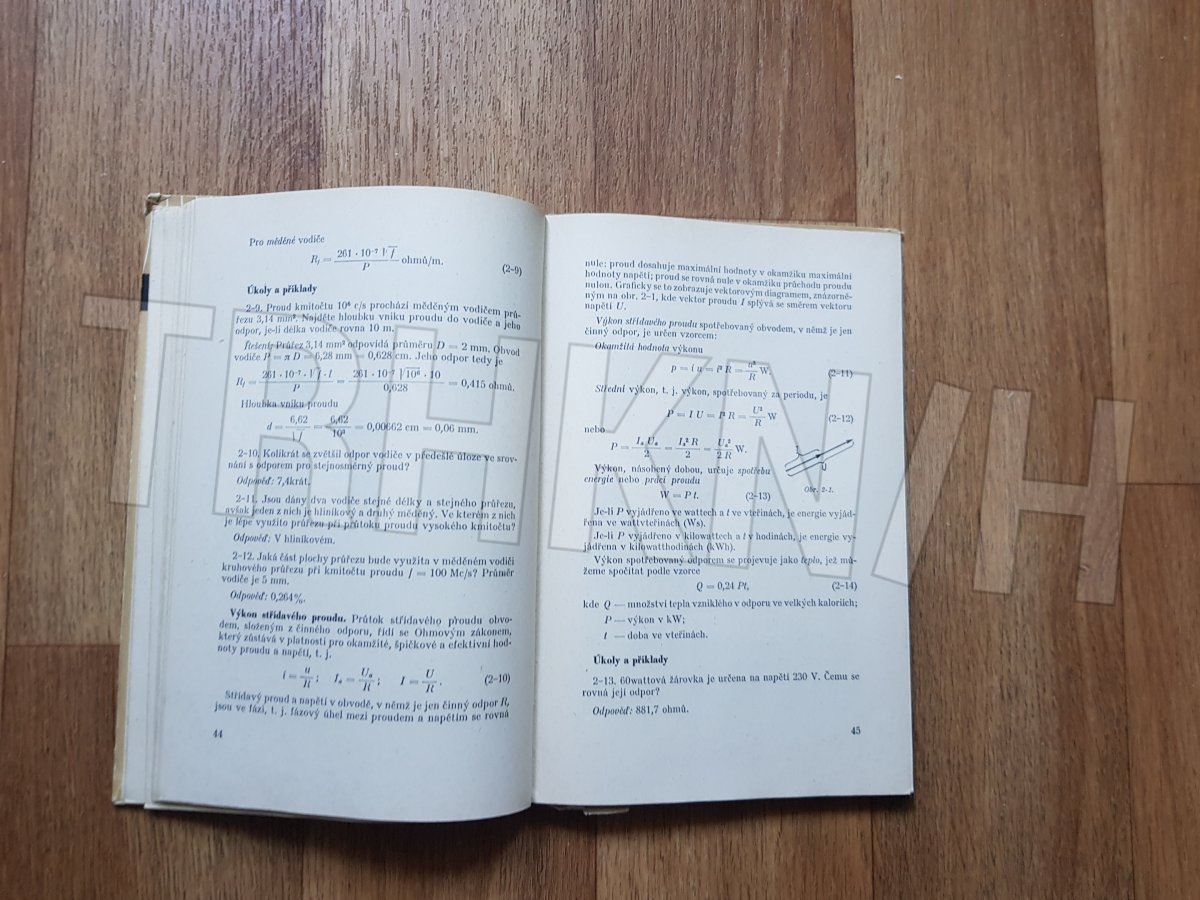 Pro měděné vodiče
R_f = 261 · 10⁻⁷ √f / P ohmů/m. (2-9)
Úkoly a příklady
2-9. Proud kmitočtu 10⁶ c/s prochází měděným vodičem prů-
řezu 3,14 mm². Najděte hloubku vniku proudu do vodiče a jeho
odpor, je-li délka vodiče rovna 10 m.
Řešení: Průřez 3,14 mm² odpovídá průměru D = 2 mm. Obvod
vodiče P = π D = 6,28 mm = 0,628 cm. Jeho odpor tedy je
R_f = 261 · 10⁻⁷ · √f · l / P = 261 · 10⁻⁷ √10⁶ · 10 / 0,628 = 0,415 ohmů.
Hloubka vniku proudu
d = 6,62 / √f = 6,62 / 10³ = 0,00662 cm = 0,06 mm.
2-10. Kolikrát se zvětšil odpor vodiče v předešlé úloze ve srov-
nání s odporem pro stejnosměrný proud?
Odpověď: 7,4krát.
2-11. Jsou dány dva vodiče stejné délky a stejného průřezu,
avšak jeden z nich je hliníkový a druhý měděný. Ve kterém z nich
je lépe využito průřezu při průtoku proudu vysokého kmitočtu?
Odpověď: V hliníkovém.
2-12. Jaká část plochy průřezu bude využita v měděném vodiči
kruhového průřezu při kmitočtu proudu f = 100 Mc/s? Průměr
vodiče je 5 mm.
Odpověď: 0,264%.
Výkon střídavého proudu. Průtok střídavého proudu obvo-
dem, složeným z činného odporu, řídí se Ohmovým zákonem,
který zůstává v platnosti pro okamžité, špičkové a efektivní hod-
noty proudu a napětí, t. j.
i = u / R ; I_a = U_a / R ; I = U / R . (2-10)
Střídavý proud a napětí v obvodě, v němž je jen činný odpor R,
jsou ve fázi, t. j. fázový úhel mezi proudem a napětím se rovná
44
nule; proud dosahuje maximální hodnoty v okamžiku maximální
hodnoty napětí; proud se rovná nule v okamžiku průchodu proudu
nulou. Graficky se to zobrazuje vektorovým diagramem, znázorně-
ným na obr. 2-1, kde vektor proudu I splývá se směrem vektoru
napětí U.
Výkon střídavého proudu spotřebovaný obvodem, v němž je jen
činný odpor, je určen vzorcem:
Okamžitá hodnota výkonu
p = i u = i² R = u² / R W. (2-11)
Střední výkon, t. j. výkon, spotřebovaný za periodu, je
P = I U = I² R = U² / R W (2-12)
nebo
P = I_a U_a / 2 = I_a² R / 2 = U_a² / 2 R W.
I
U
Obr. 2-1.
Výkon, násobený dobou, určuje spotřebu
energie nebo práci proudu
W = P t. (2-13)
Je-li P vyjádřeno ve wattech a t ve vteřinách, je energie vyjád-
řena ve wattvteřinách (Ws).
Je-li P vyjádřeno v kilowattech a t v hodinách, je energie vy-
jádřena v kilowatthodinách (kWh).
Výkon spotřebovaný odporem se projevuje jako teplo, jež mů-
žeme spočítat podle vzorce
Q = 0,24 Pt, (2-14)
kde Q — množství tepla vzniklého v odporu ve velkých kaloriích;
P — výkon v kW;
t — doba ve vteřinách.
Úkoly a příklady
2-13. 60wattová žárovka je určena na napětí 230 V. Čemu se
rovná její odpor?
Odpověď: 881,7 ohmů.
45
TRHKNIH